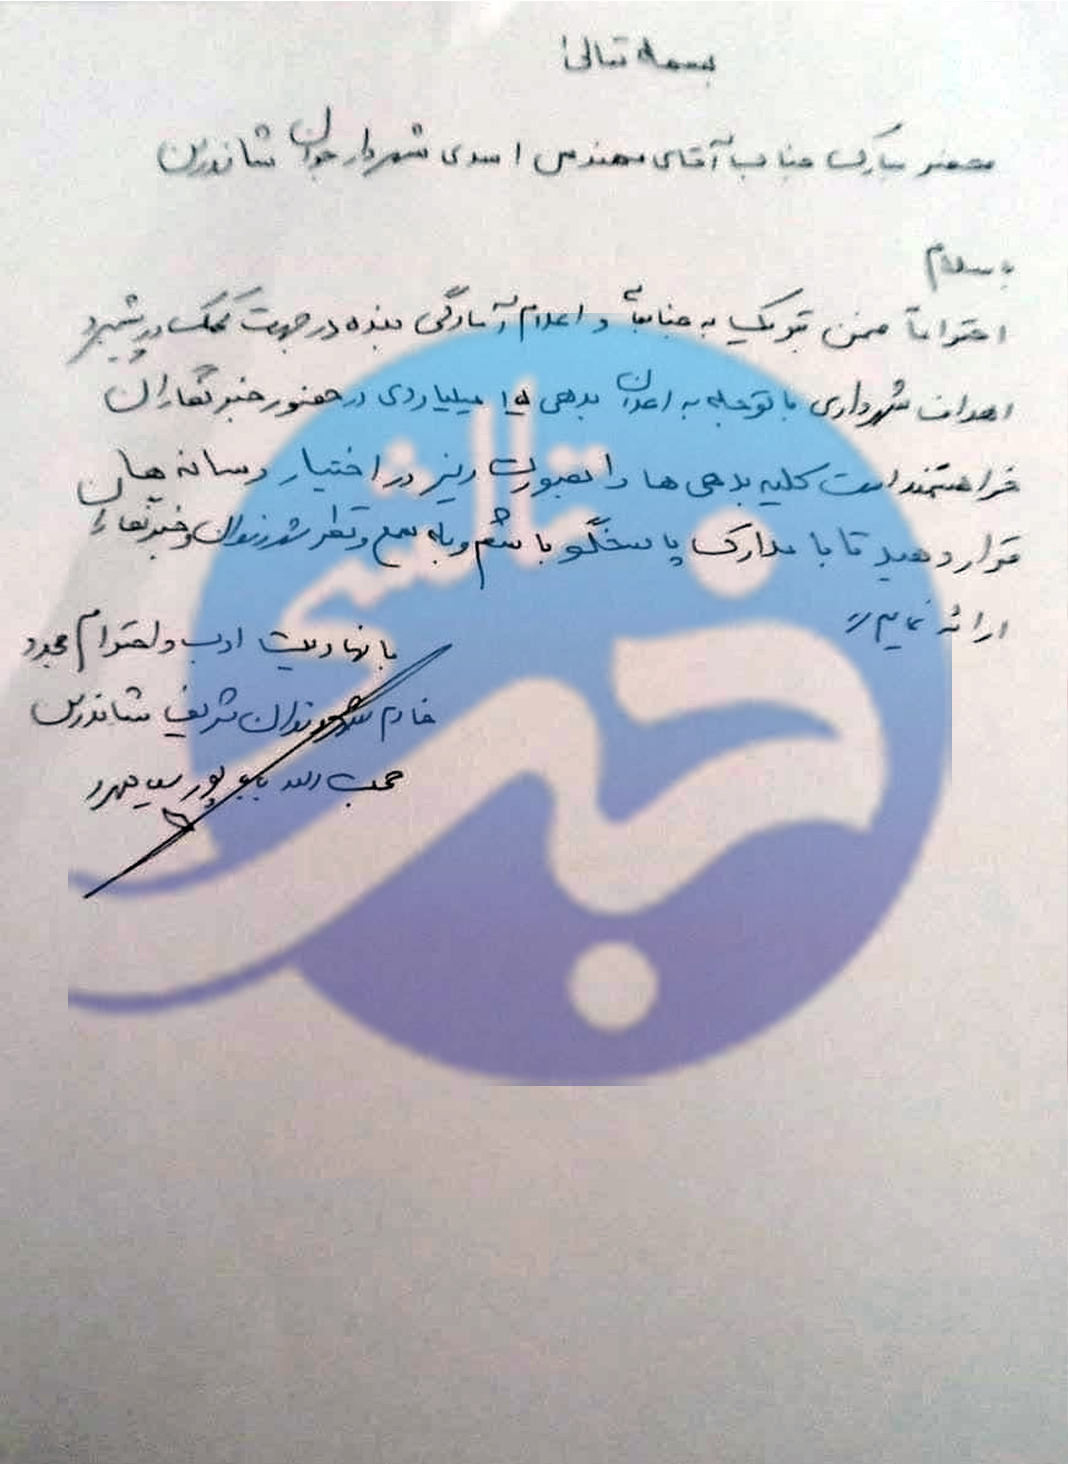 بسمه تعالی
محضر مبارک جناب آقای مهندس اسدی شهردار جوان شاندرمن
با سلام
احتراماً ضمن تبریک به جنابعالی و اعلام آمادگی بنده در جهت کمک در پیشبرد
اهداف شهرداری با توجه به اعلان بدهی ۱۵ میلیاردی در حضور خبرنگاران
خواهشمند است کلیه بدهی ها را بصورت ریز در اختیار رسانه ها
قرار دهید تا با مدارک پاسخگو باشم و به سمع و نظر شهروندان و خبرنگاران
ارائه نمایم
با نهایت ادب و احترام مجدد
خادم شهروندان شریف شاندرمن
محب الله بابا پور سیاهمرد
تالش
خبر